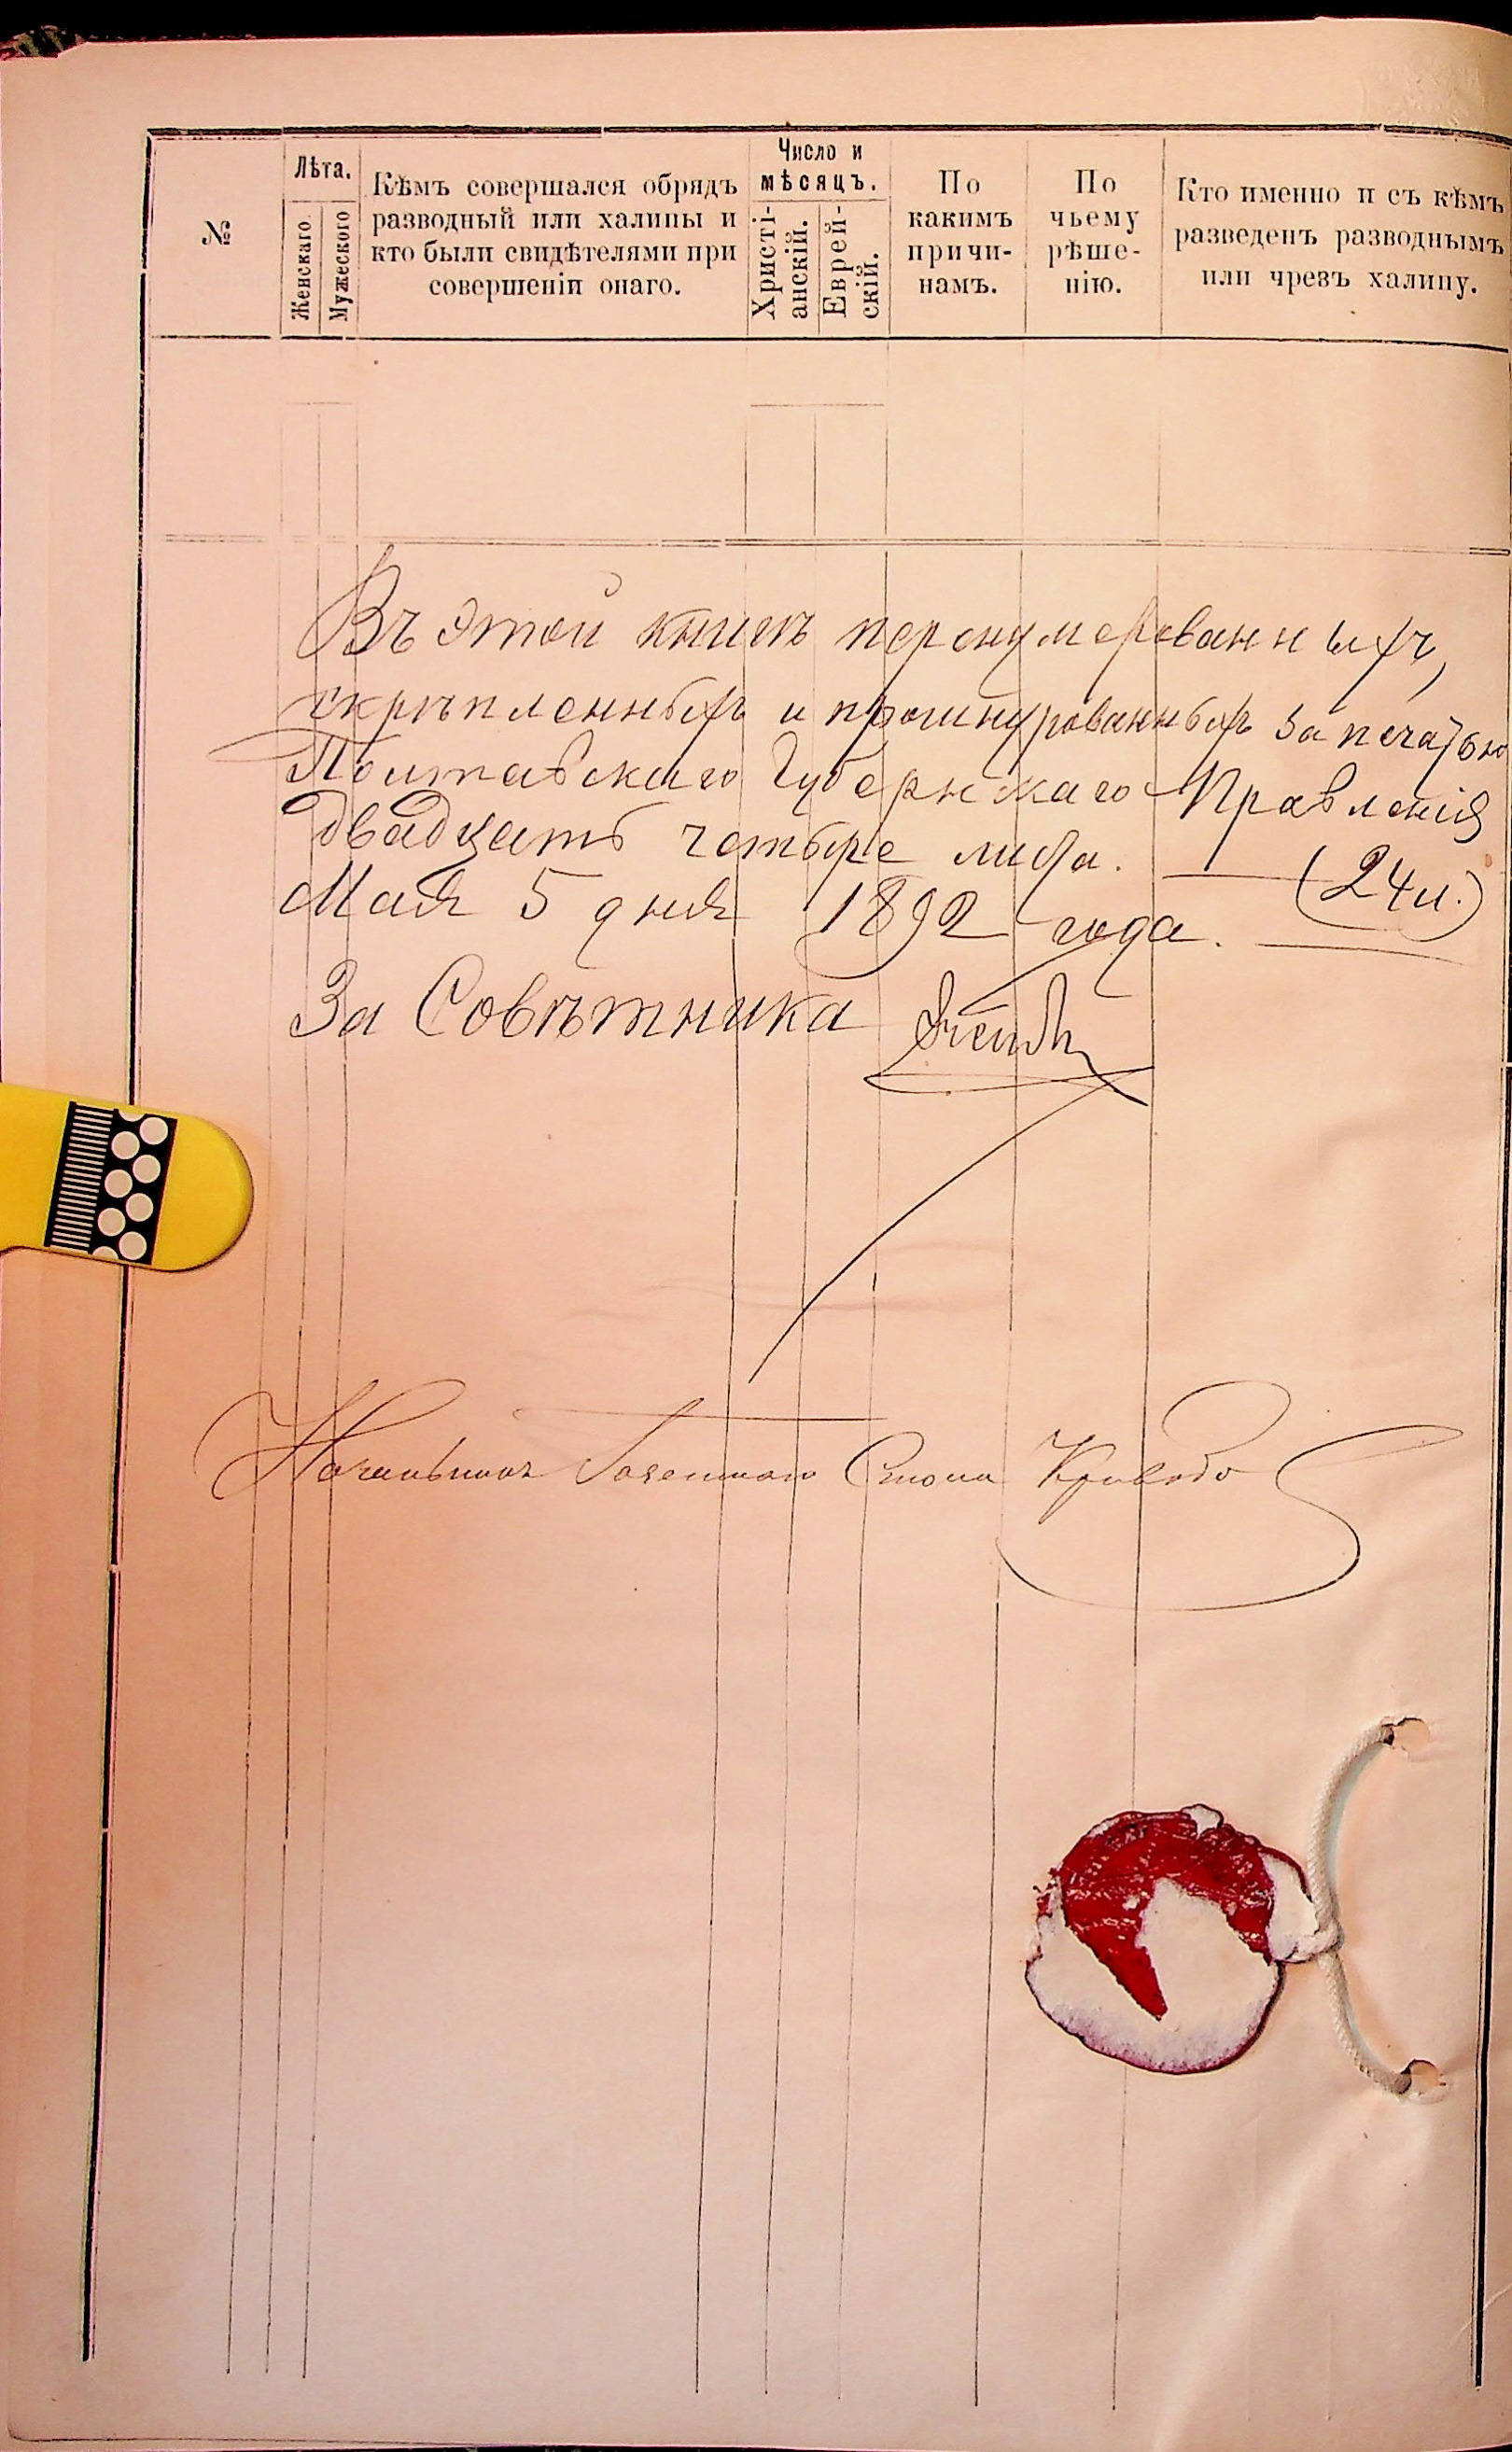 №
Лѣта.
Женскаго.
Мужескаго
Кѣмъ совершался обрядъ
разводный или халицы и
кто были свидѣтелями при
совершеніи онаго.
Число и
мѣсяцъ.
Христі-
анскій.
Еврей-
скій.
По
какимъ
причи-
намъ.
По
чьему
рѣше-
нію.
Кто именно и съ кѣмъ
разведенъ разводнымъ
или чрезъ халицу.
Въ этой книгѣ перенумерованныхъ,
скрѣпленныхъ и прошнурованныхъ за печатью
Полтавскаго Губернскаго Правленія
двадцать четыре листа. (24 л.)
Мая 5 дня 1892 года.
За Совѣтника
Начальникъ Стола